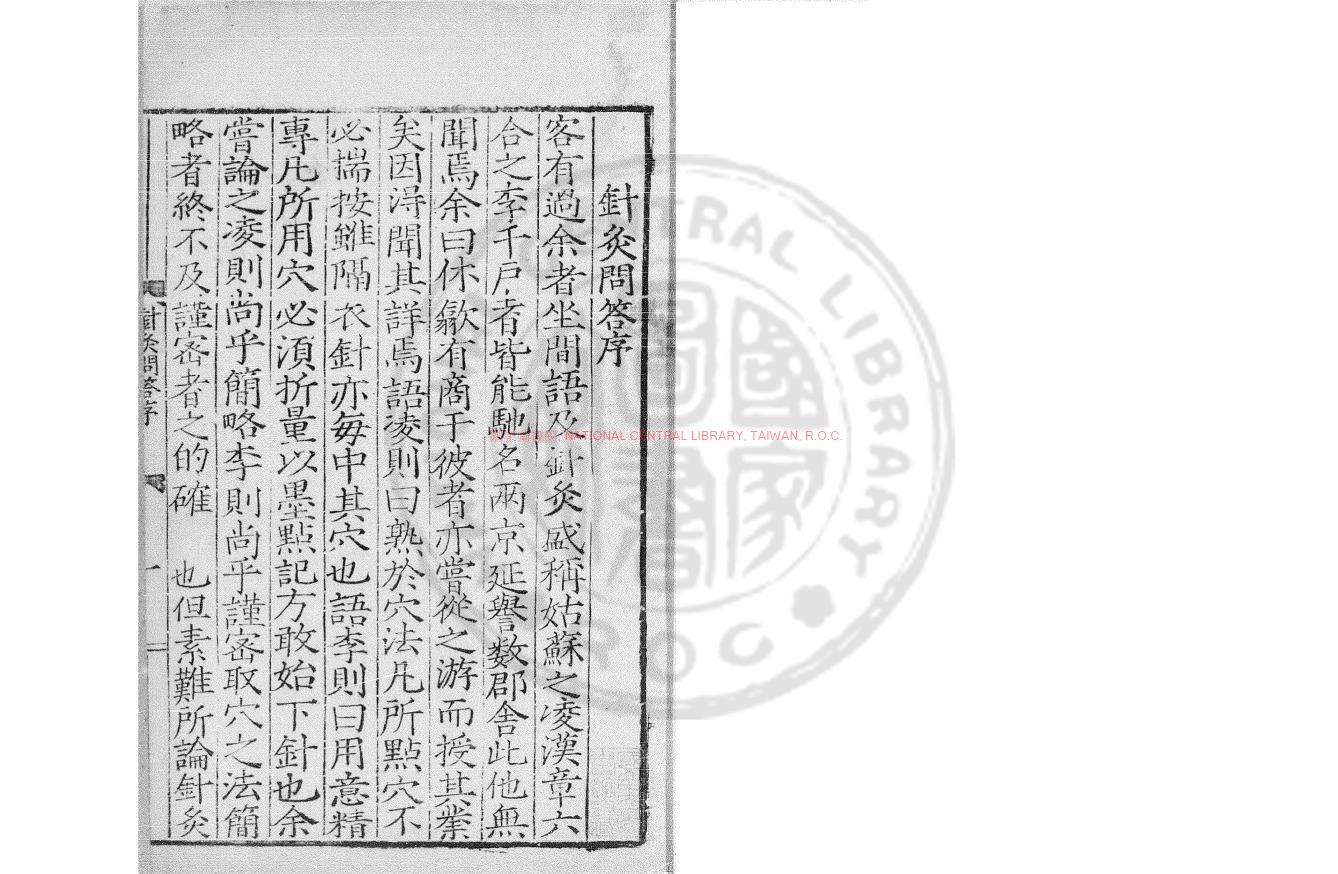 針灸問答序
客有過余者坐間語及針灸盛稱姑蘇之凌漢章六
合之李千戶者皆能馳名兩京延譽數郡舍此他無
聞焉余曰休歙有商于彼者亦嘗從之游而授其業
矣因得聞其詳焉語凌則曰熟於穴法凡所點穴不
必揣按雖隔衣針亦每中其穴也語李則曰用意精
專凡所用穴必須折量以墨點記方敢始下針也余
嘗論之凌則尚乎簡略李則尚乎謹密取穴之法簡
略者終不及謹密者之的確 也但素難所論針灸
針灸問答序
一
NATIONAL CENTRAL LIBRARY, TAIWAN, R.O.C.
CENTRAL LIBRARY
R.O.C.